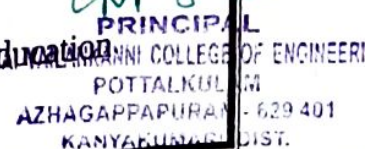 PRINCIPAL
ducation
COLLEGE OF ENGINEERI
POTTALKUL M
AZHAGAPPAPURAM - 629 401
KANYAKUMARI DIST.